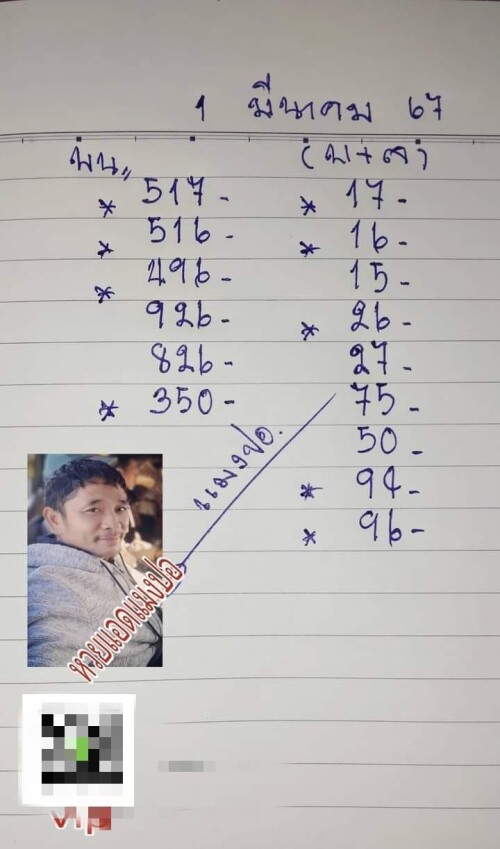 1 มีนาคม 67
บน,, (บ+ล)
* 517- * 17-
* 516- * 16-
* 496- 15-
926- * 26-
826- 27-
* 350- 75-
50-
* 94-
* 96-
แมงปอ.
หวยแอดแมงปอ
vip